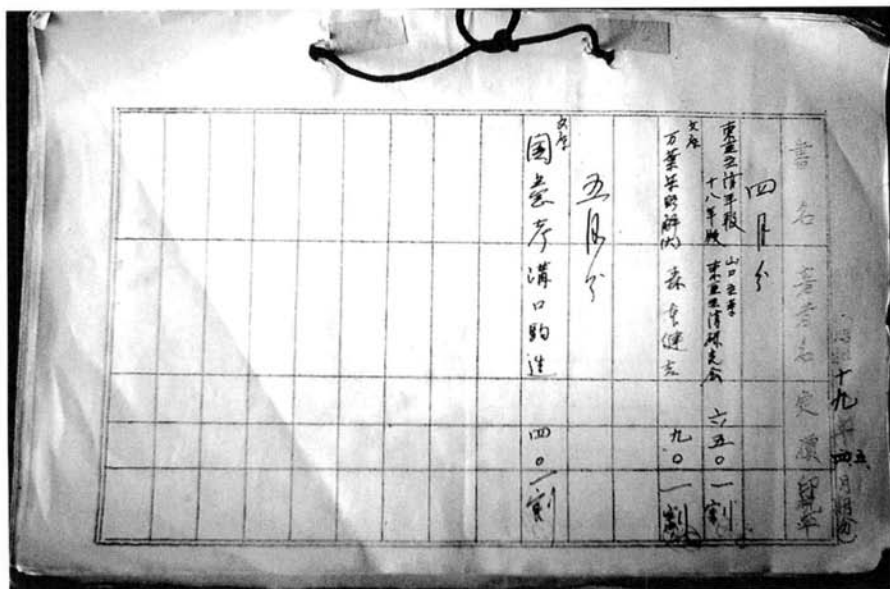 昭和十九年四五月期分
書名 著者名 定價 印税率
四月分
東亜経済年報 十八年版 山口高等 東亜経済研究会 六五〇 一割
文庫 万葉集略解 森本健吉 九〇 一割
五月分
文庫 国意考 溝口駒造 四〇 一割